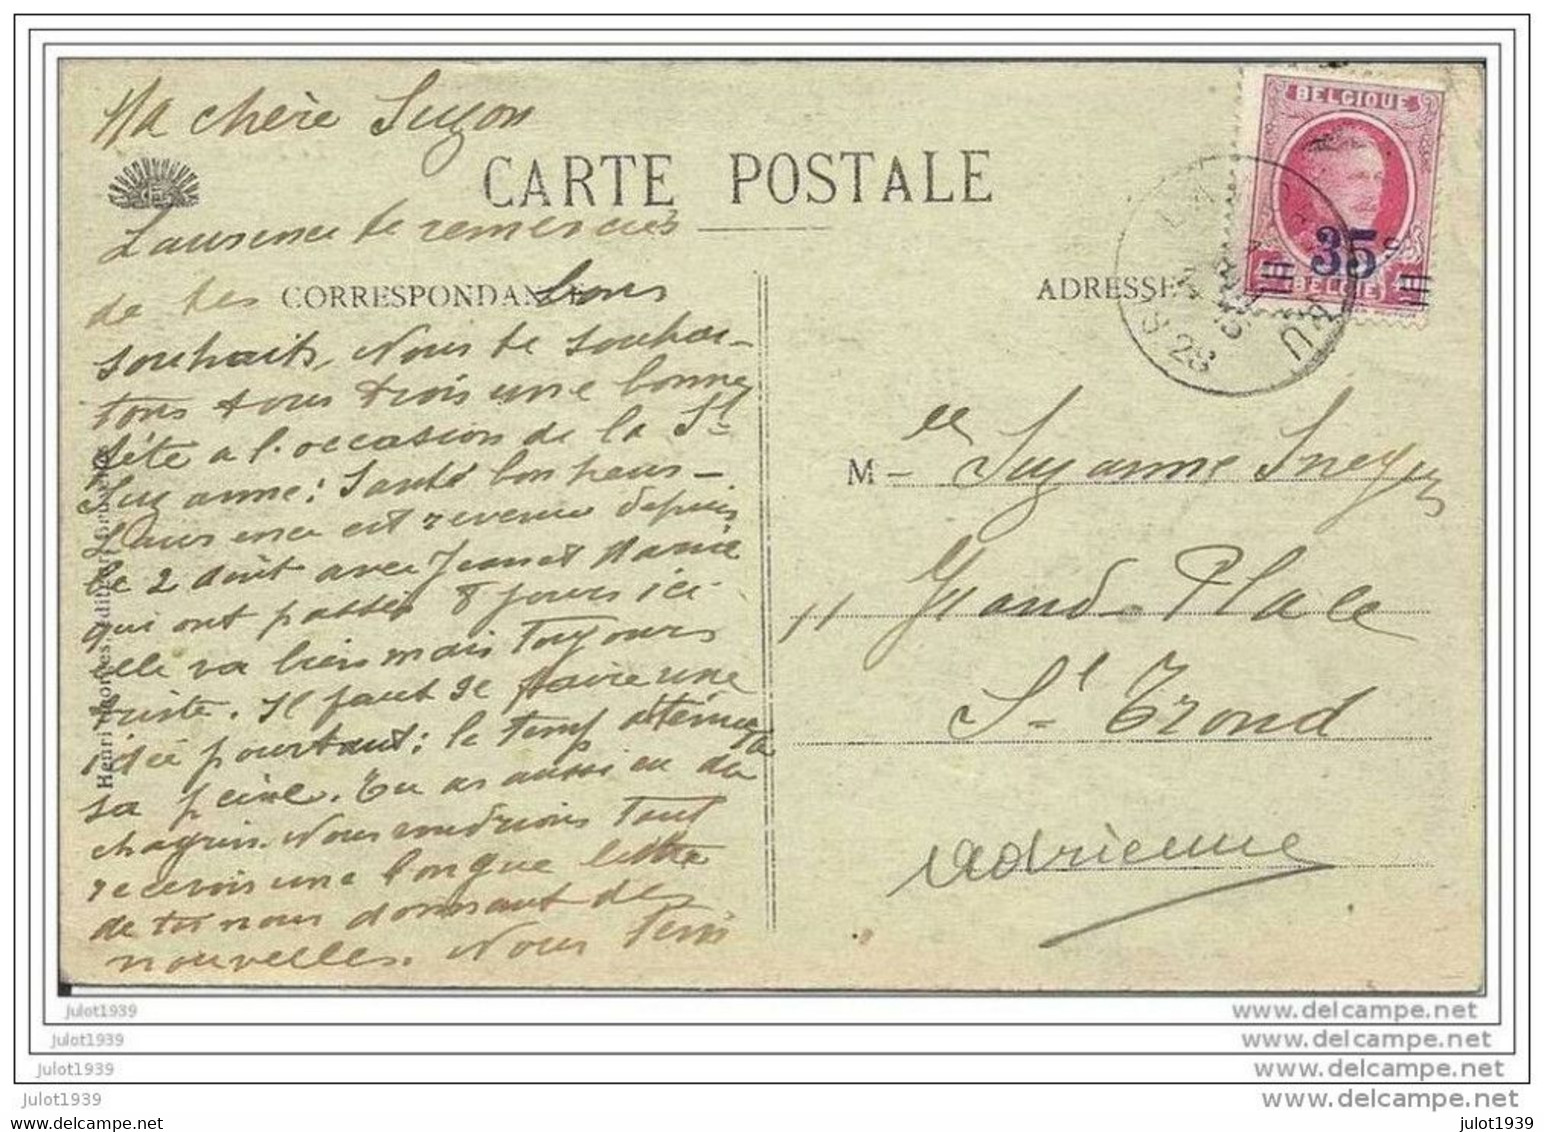 Ma chère Suzon
CARTE POSTALE
Laurence te remercies
de tes bons
CORRESPONDANCE
souhaits, Nous te souhai-
tons tous trois une bonne
fête a l'occasion de la St
Suzanne: Santé bonheur-
Laurence est revenue depuis
le 2 août avec Jean et Marie
qui ont passés 8 jours ici-
elle va bien mais toujours
triste. Il faut se faire une
idée pourtant: le temp
sa peine. Tu as aussi eu du
chagrin. Nous voudrions tant
recevoir une longue lettre
de toi nous donnant des
nouvelles. Nous
Henri Georges, éditeur, Bruxelles
ADRESSE
BELGIQUE
35 c
(BELGIË)
28
M elle Suzanne
11 Grand-Place
St Trond
Adrienne
julot1939
www.delcampe.net
julot1939
www.delcampe.net
julot1939
www.delcampe.net
julot1939
www.delcampe.net
julot1939
www.delcampe.net
julot1939